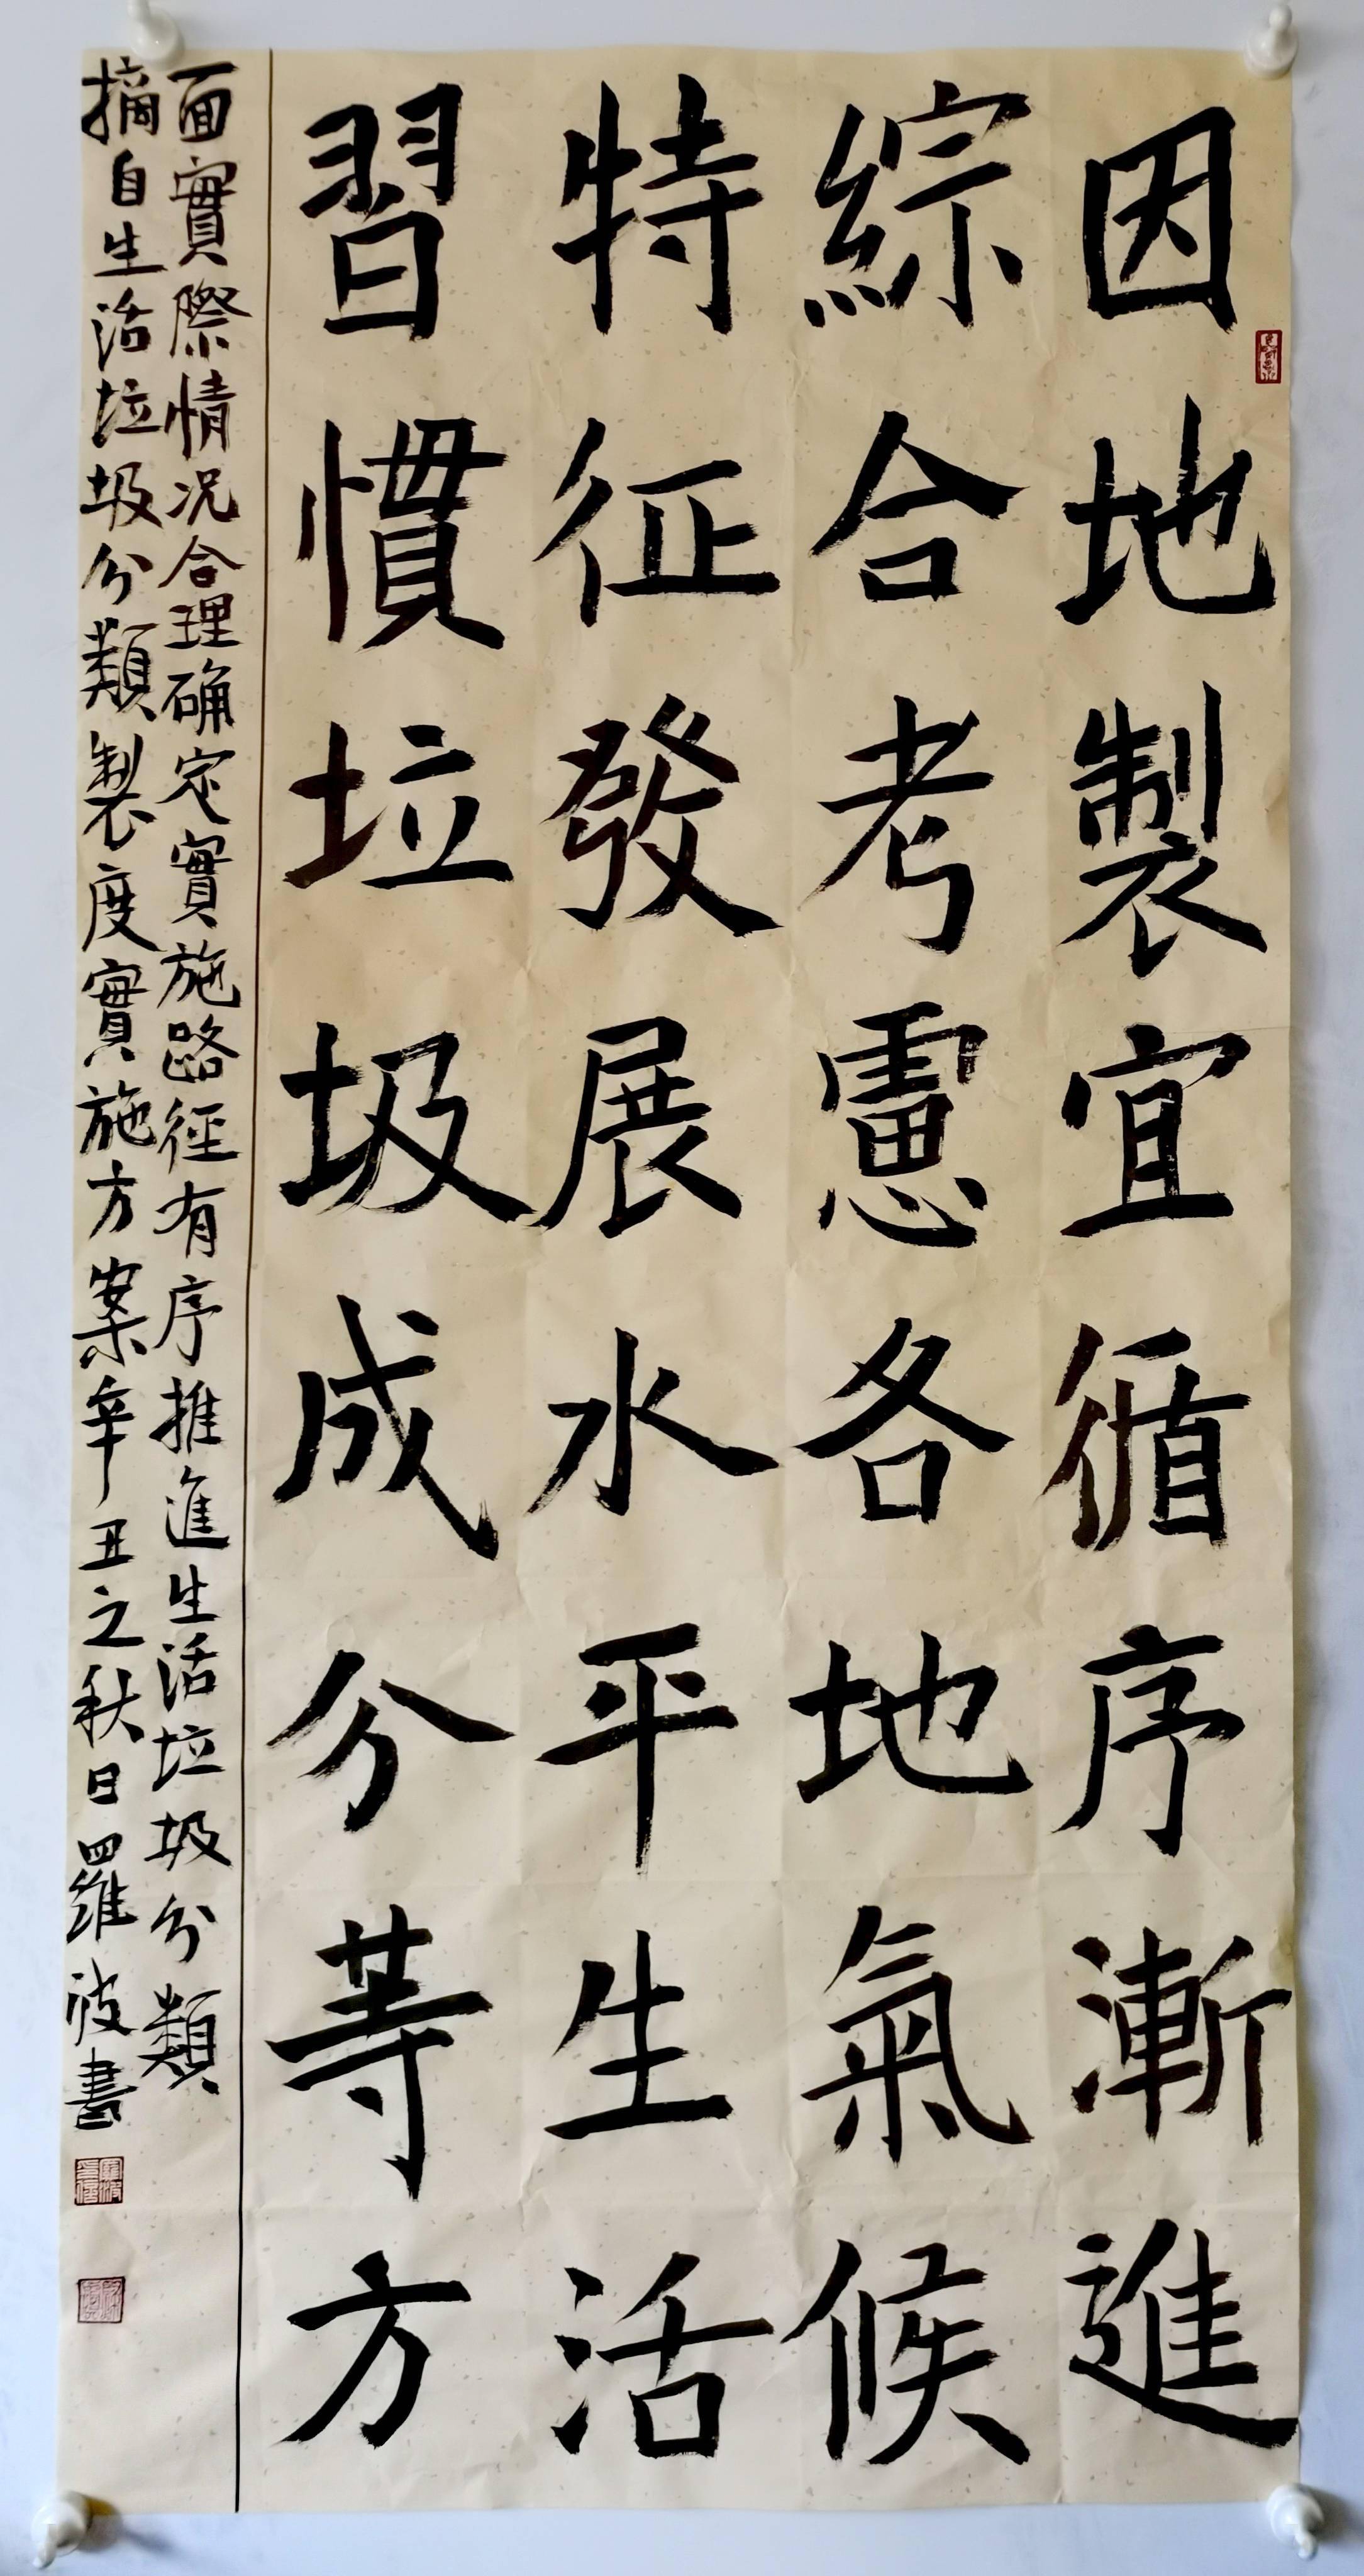 因地製宜循序漸進
綜合考慮各地氣候
特征發展水平生活
習慣垃圾成分等方
面實際情况合理确定實施路徑有序推進生活垃圾分類
摘自生活垃圾分類製度實施方案辛丑之秋日羅波書